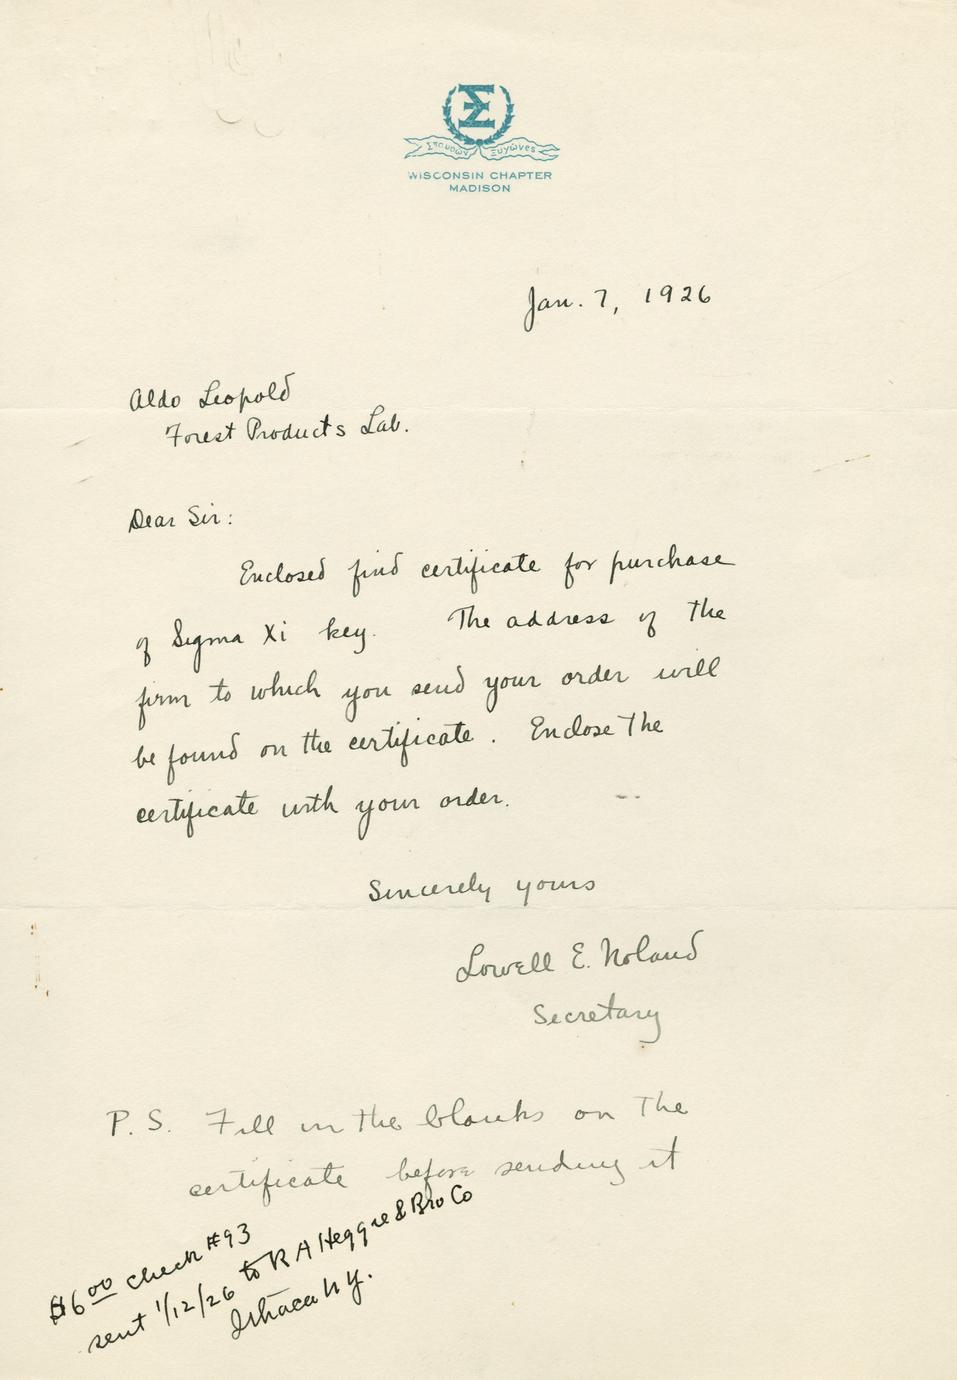 ΣΞ
Σπουδῶν Ξυνῶνες
WISCONSIN CHAPTER
MADISON
Jan. 7, 1926
Aldo Leopold
Forest Products Lab.
Dear Sir:
Enclosed find certificate for purchase
of Sigma Xi key. The address of the
firm to which you send your order will
be found on the certificate. Enclose the
certificate with your order.
Sincerely yours
Lowell E. Noland
Secretary
P. S. Fill in the blanks on the
certificate before sending it
$6.00 check #93
sent 1/12/26 to R A Heggie & Bro Co
Ithaca N Y.